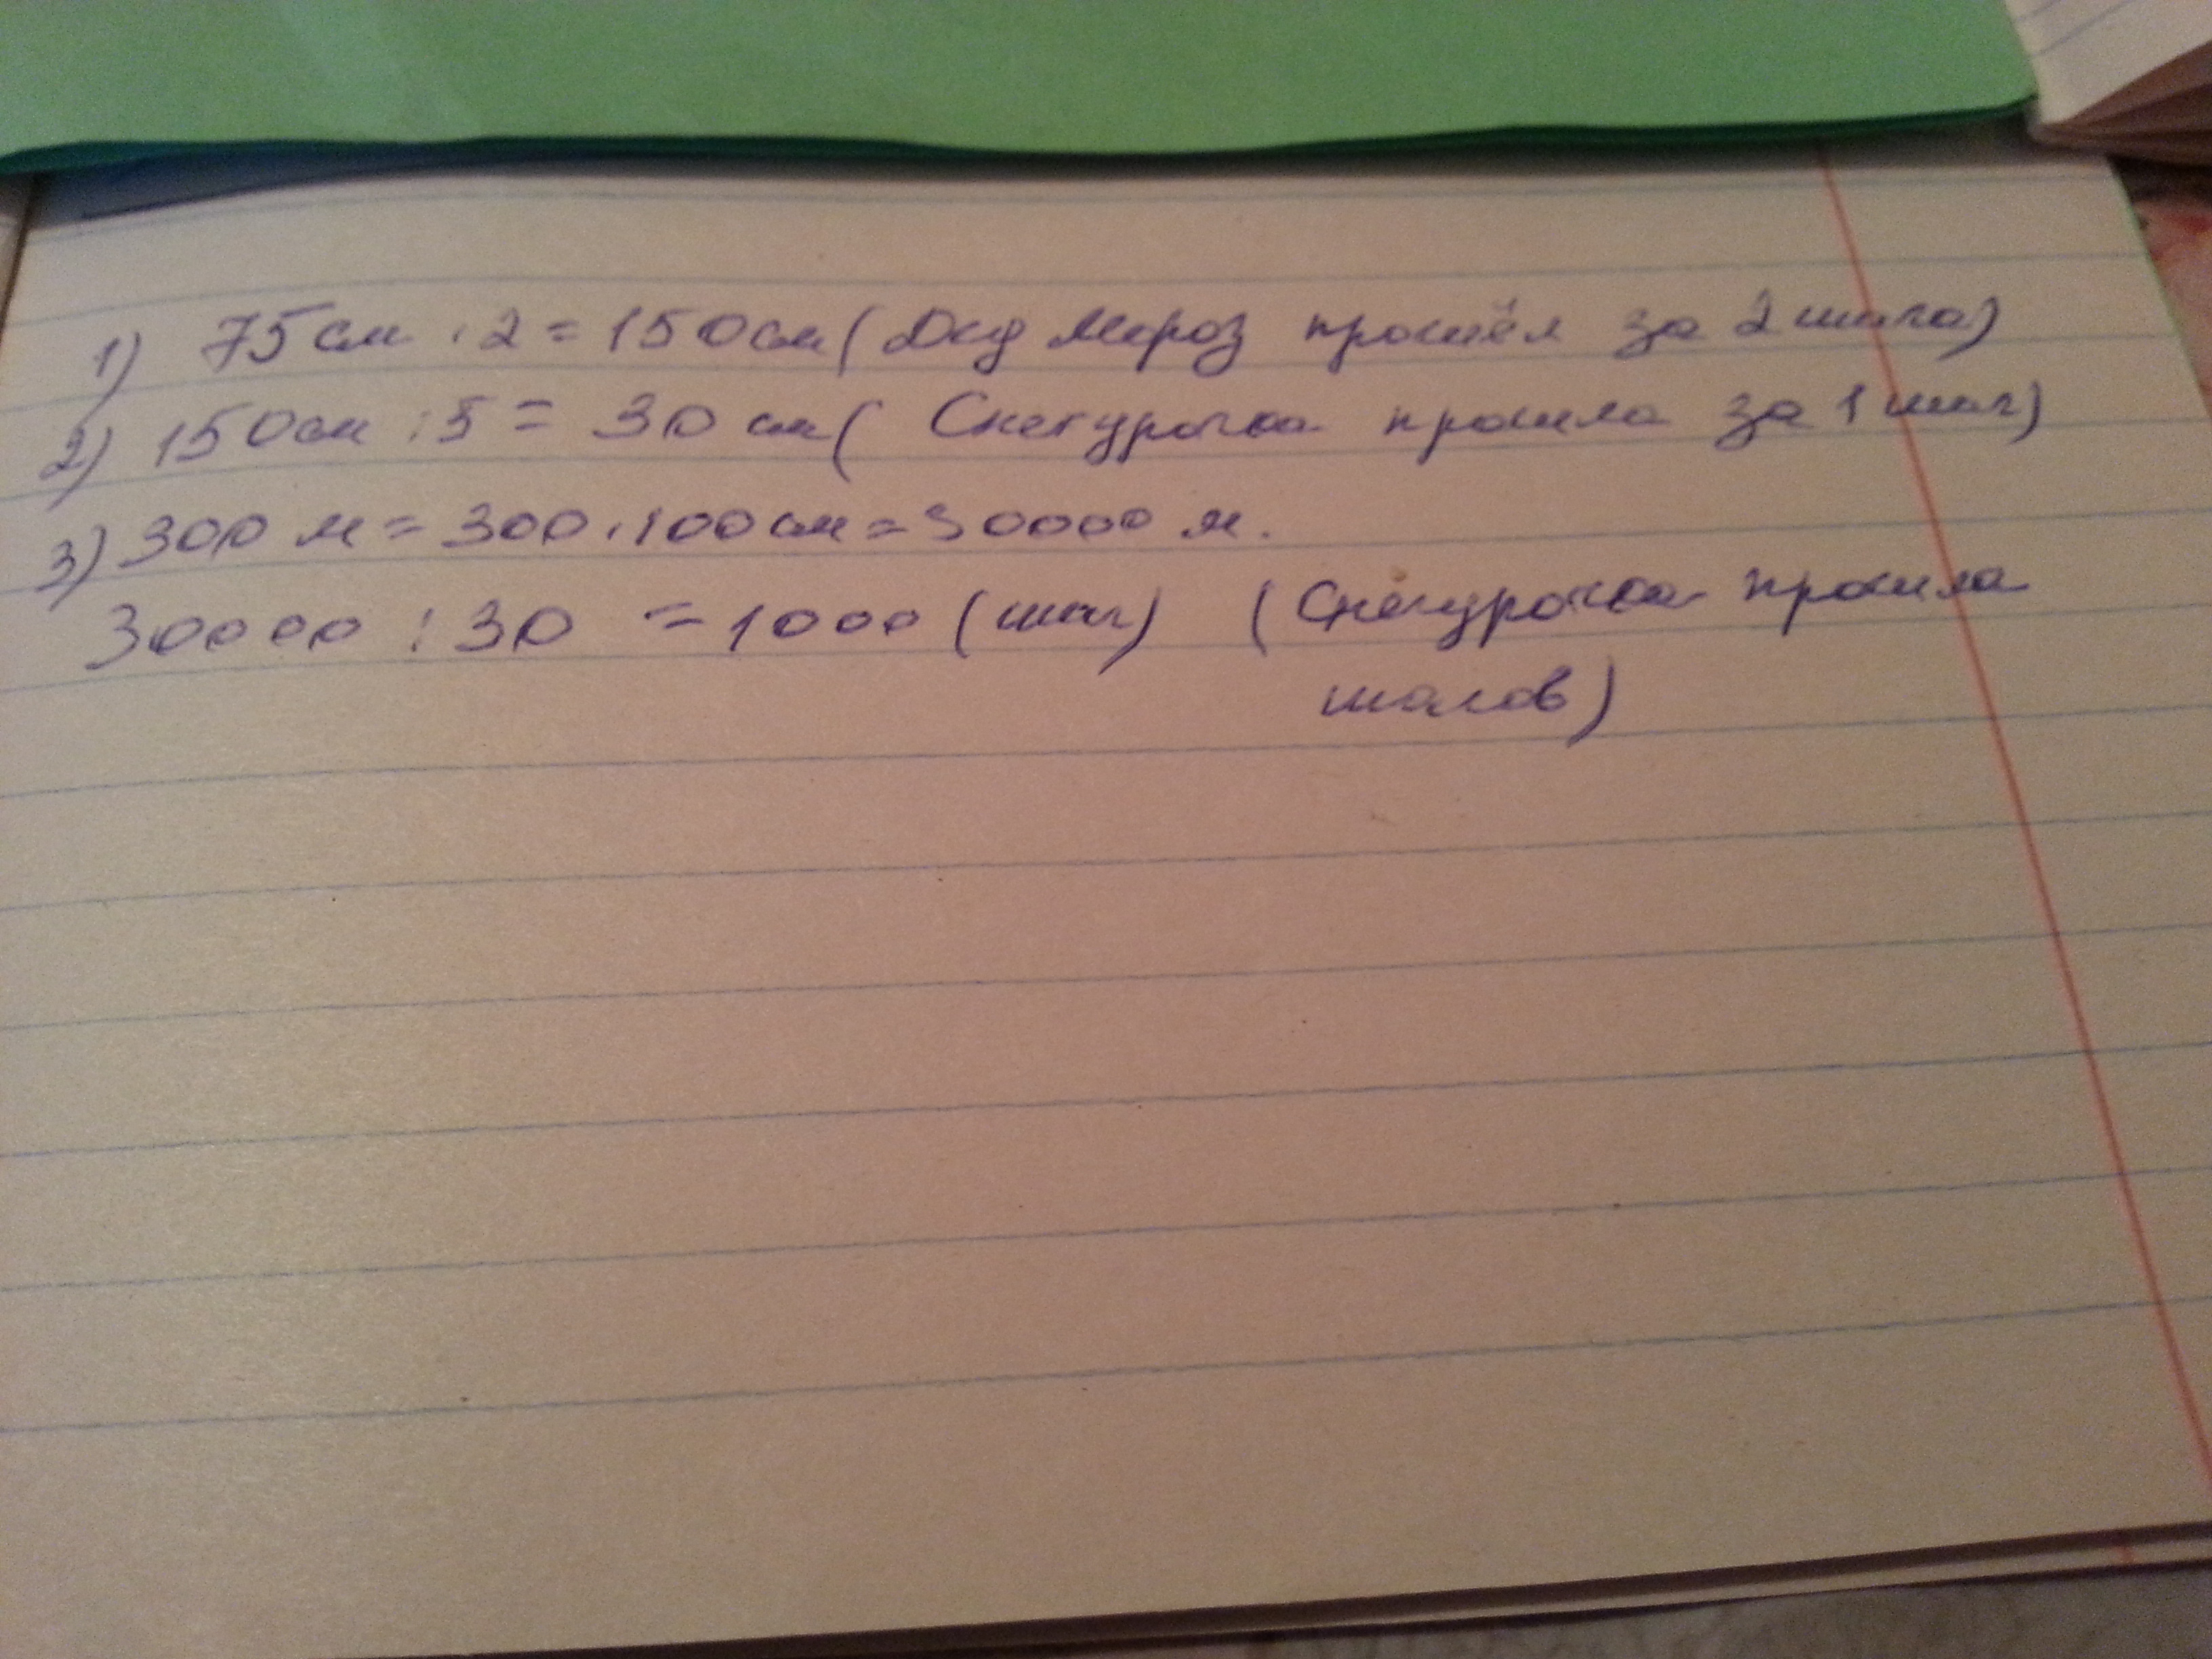 1) 75 см · 2 = 150 см (Дед Мороз прошёл за 2 шага)
2) 150 см : 5 = 30 см ( Снегурочка прошла за 1 шаг)
3) 300 м = 300 · 100 см = 30000 м.
30000 : 30 = 1000 (шаг) (Снегурочка прошла
шагов)